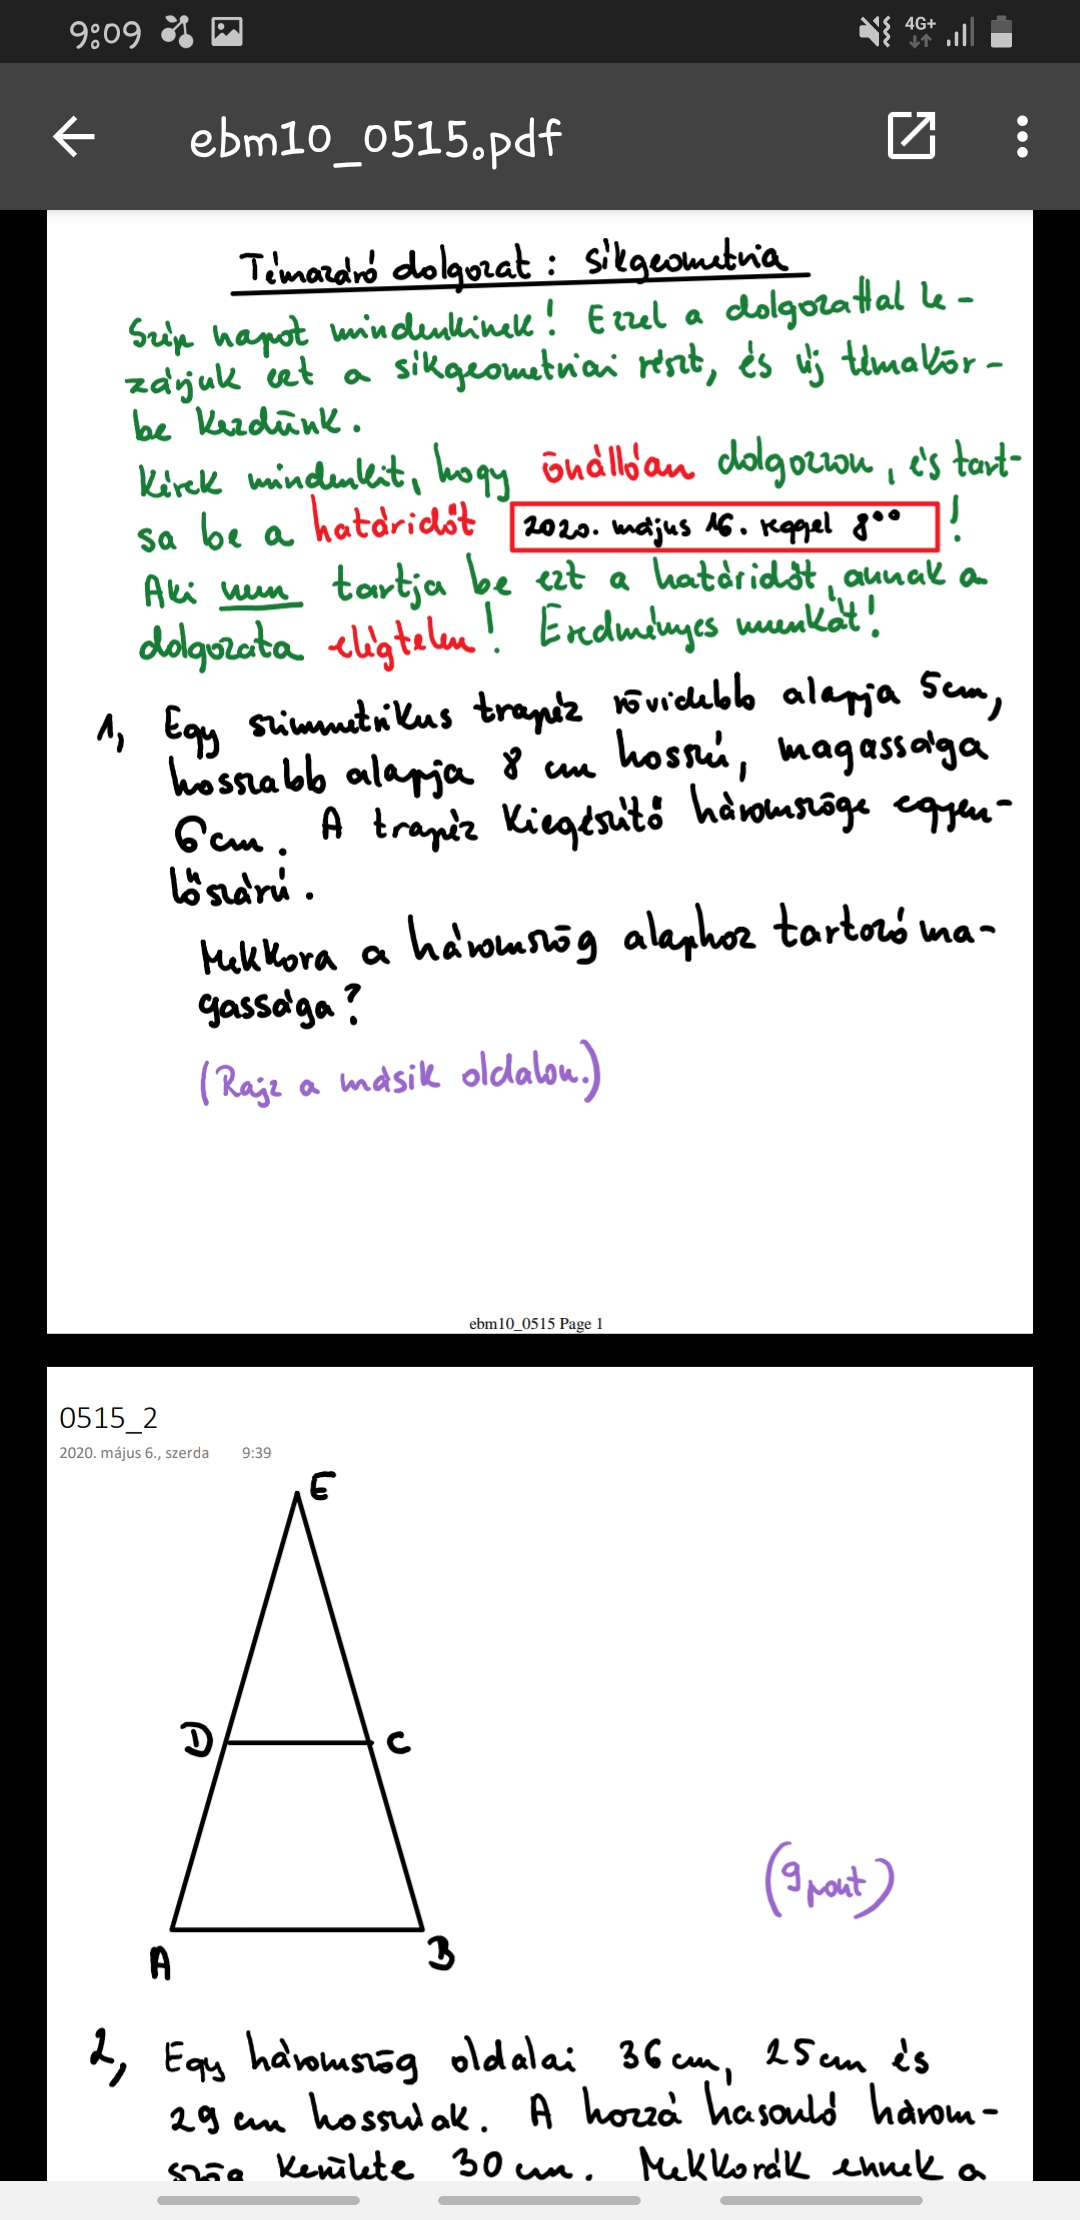 9:09
4G+
ebm10_0515.pdf
Témazáró dolgozat : síkgeometria
Szép napot mindenkinek! Ezzel a dolgozattal le-
zárjuk ezt a síkgeometriai részt, és új témakör-
be kezdünk.
Kérek mindenkit, hogy önállóan dolgozzon, és tart-
sa be a határidőt 2020. május 16. reggel 8⁰⁰ !
Aki nem tartja be ezt a határidőt, annak a
dolgozata elégtelen! Eredményes munkát!
1, Egy szimmetrikus trapéz rövidebb alapja 5cm,
hosszabb alapja 8 cm hosszú, magassága
6cm. A trapéz kiegészítő háromszöge egyen-
lőszárú.
Mekkora a háromszög alaphoz tartozó ma-
gassága?
(Rajz a másik oldalon.)
ebm10_0515 Page 1
0515_2
2020. május 6., szerda 9:39
E
D C
(9 pont)
A B
2, Egy háromszög oldalai 36 cm, 25 cm és
29 cm hosszúak. A hozzá hasonló három-
szög kerülete 30 cm. Mekkorák ennek a